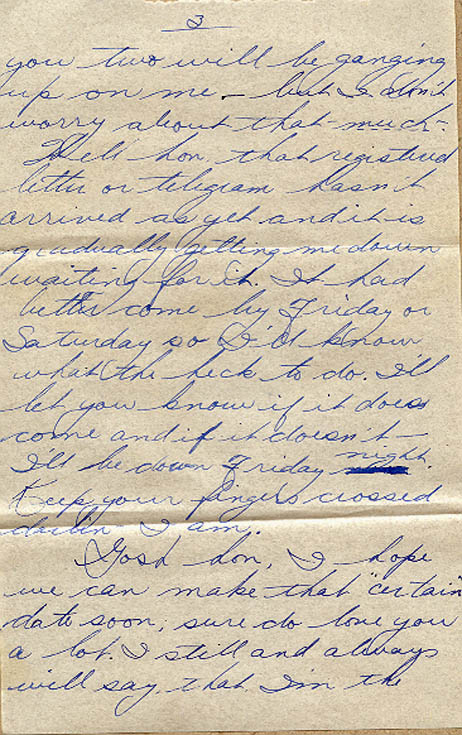 3
you two will be ganging
up on me – but I don't
worry about that much.
Well hon, that registered
letter or telegram hasn't
arrived as yet and it is
gradually getting me down
waiting for it. It had
better come by Friday or
Saturday so I'll know
what the heck to do. I'll
let you know if it does
come and if it doesn't –
I'll be down Friday night.
Keep your fingers crossed
darlin – I am.
Gosh hon, I hope
we can make that "certain
date soon, sure do love you
a lot. I still and always
will say, that I'm the